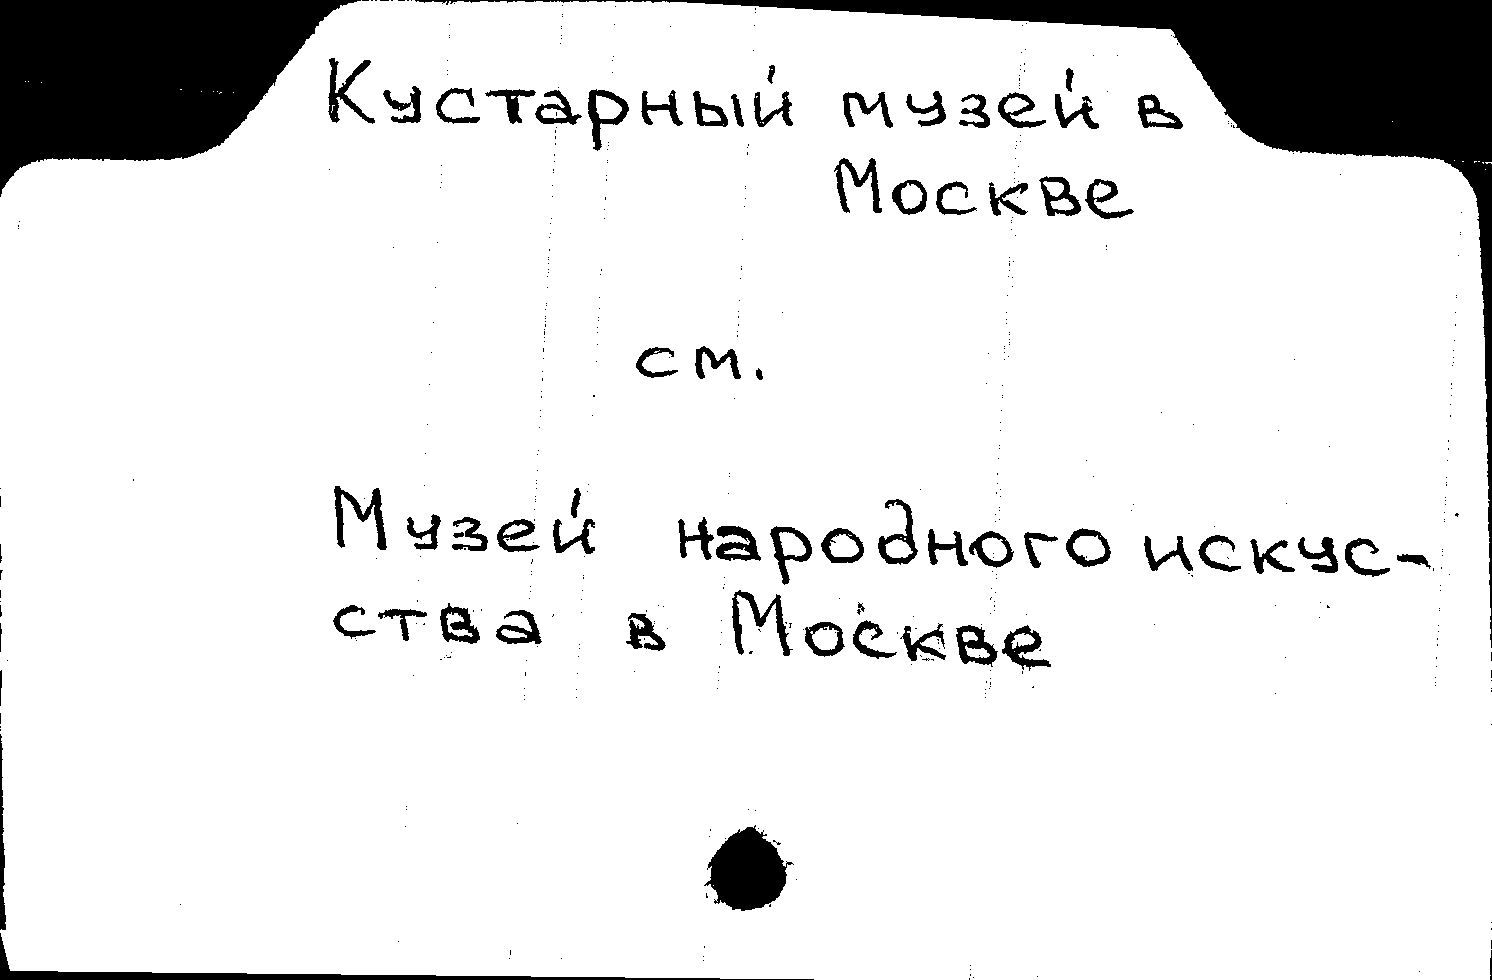 Кустарный музей в
Москве
см.
Музей народного искус-
ства в Москве